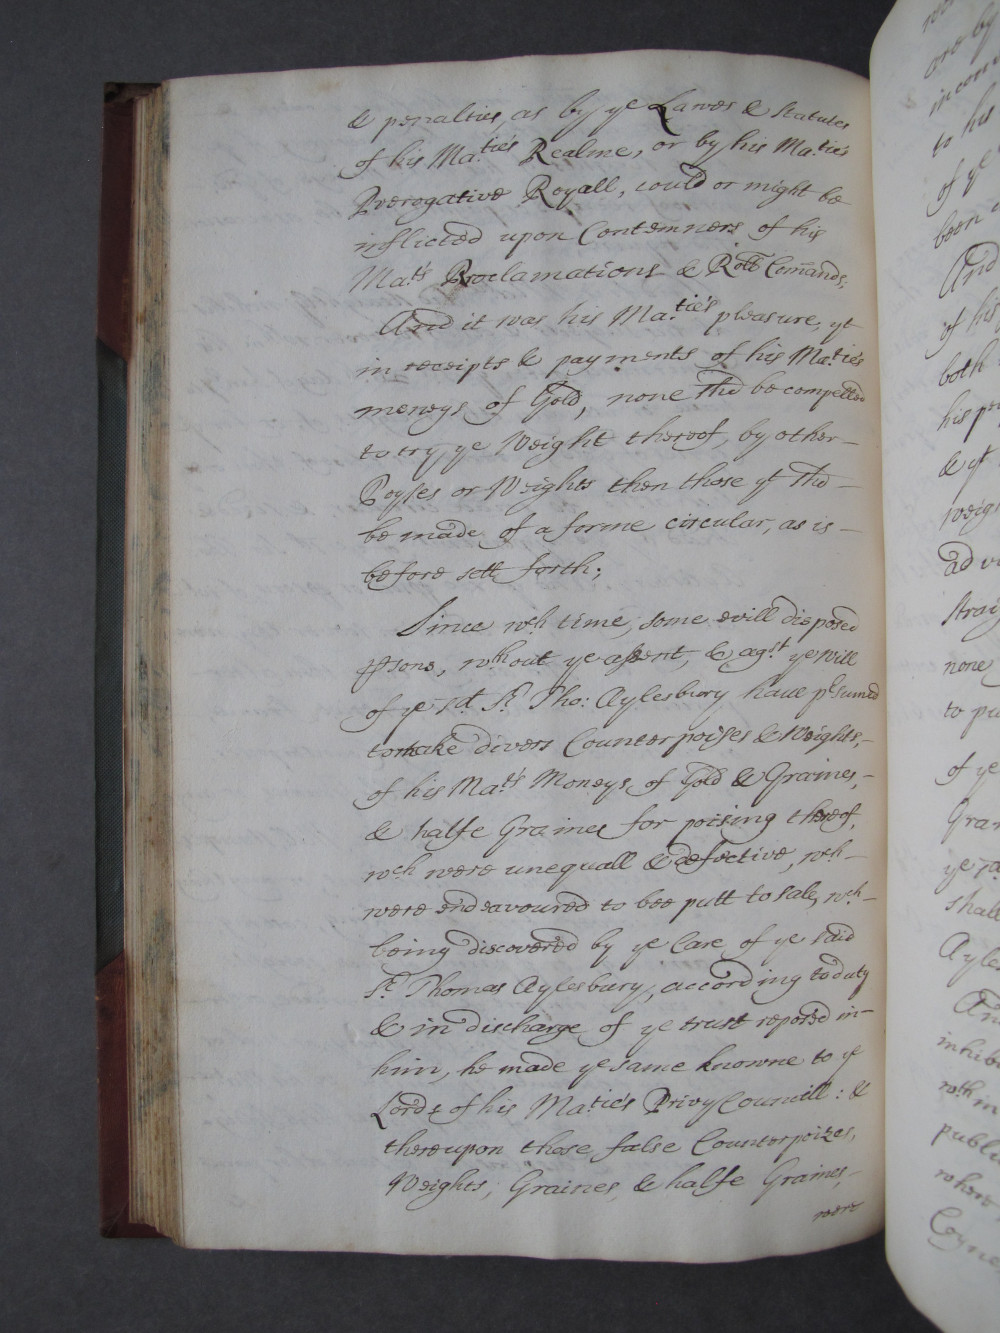 & penalties, as by ye Lawes & Statutes
of his Ma.ties Realme, or by his Ma.ties
Prerogative Royall, could or might be
inflicted upon Contemners of his
Ma.ts Proclamations & Roll Comands;
And it was his Ma.ties pleasure, yt
in receipts & payments of his Ma.ties
moneys of Gold, none shd be compelled
to try ye Weight thereof, by other-
Poyses or Weights then those yt shd-
be made of a forme circular, as is-
before sett forth;
Since wch time, some evill disposed
psons, wthout ye assent, & agst ye will
of ye sd Sr Tho: Aylesbury have pSumed
to make divers Counterpoises & Weights,-
of his Ma.ts Moneys of Gold & Graines,-
& halfe Graines for poising thereof,
wch were unequall & defective, wch-
were endeavoured to bee putt to sale, wch-
being discovered by ye Care of ye said
Sr Thomas Aylesbury, according to duty
& in discharge of ye trust reposed in-
him, he made ye same knowne to ye
Lords of his Ma.ties Privy Councill: &
thereupon those false Counterpoizes,
Weights, Graines, & halfe Graines,-
were
are by
to his
of ye
been
And
of his
both
his
& yt
weig
none
to pu
of ye
Gra
shall
Ayle
inhib
wth in
publi
where
Coyne